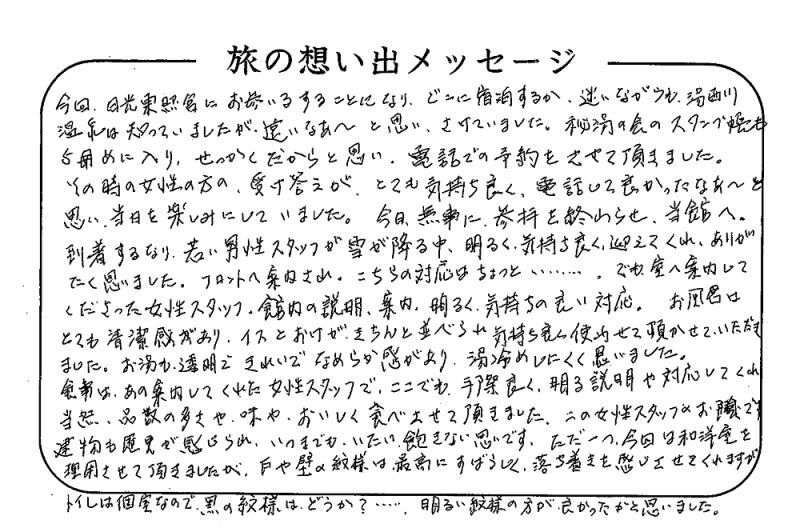 旅の想い出メッセージ
今回、日光東照宮にお参いりすることになり、どこに宿泊するか、迷いながらも、湯西川
温泉は知っていましたが、遠いなあ〜と思い、させていました。秘湯の会のスタンプ帳も
5冊めに入り、せっかくだからと思い、電話での予約をさせて頂きました。
その時の女性の方の、受け答えが、とても気持ち良く、電話して良かったなあ〜と
思い、当日を楽しみにしていました。今日、無事に、参拝を終わらせ、当館へ。
到着するなり、若い男性スタッフが雪が降る中、明るく、気持ち良く、迎えてくれ、ありが
たく思いました。フロントへ案内され。こちらの対応はちょっと………。でも室へ案内して
くださった女性スタッフ。館内の説明、案内、明るく、気持ちの良い対応。お風呂は
とても清潔感があり、イスとおけが、きちんと並べられ気持ち良く使わせて頂かせていただき
ました。お湯も、透明できれいでなめらか感があり、湯冷めしにくく思いました。
食事は、あの案内してくれた女性スタッフで、ここでも、手際良く、明る説明や対応してくれ
当然、品数の多さや、味や、おいしく食べさせて頂きました。この女性スタッフのお陰です
建物も歴史が感じられ、いつまでも、いたい、飽きない思いです。ただ一つ、今回は和洋室を
理用させて頂きましたが、戸や壁の紋様は、最高にすばらしく、落ち着きを感じさせてくれますが
トイレは個室なので、黒の紋様は、どうか？……、明るい紋様の方が、良かったかと思いました。